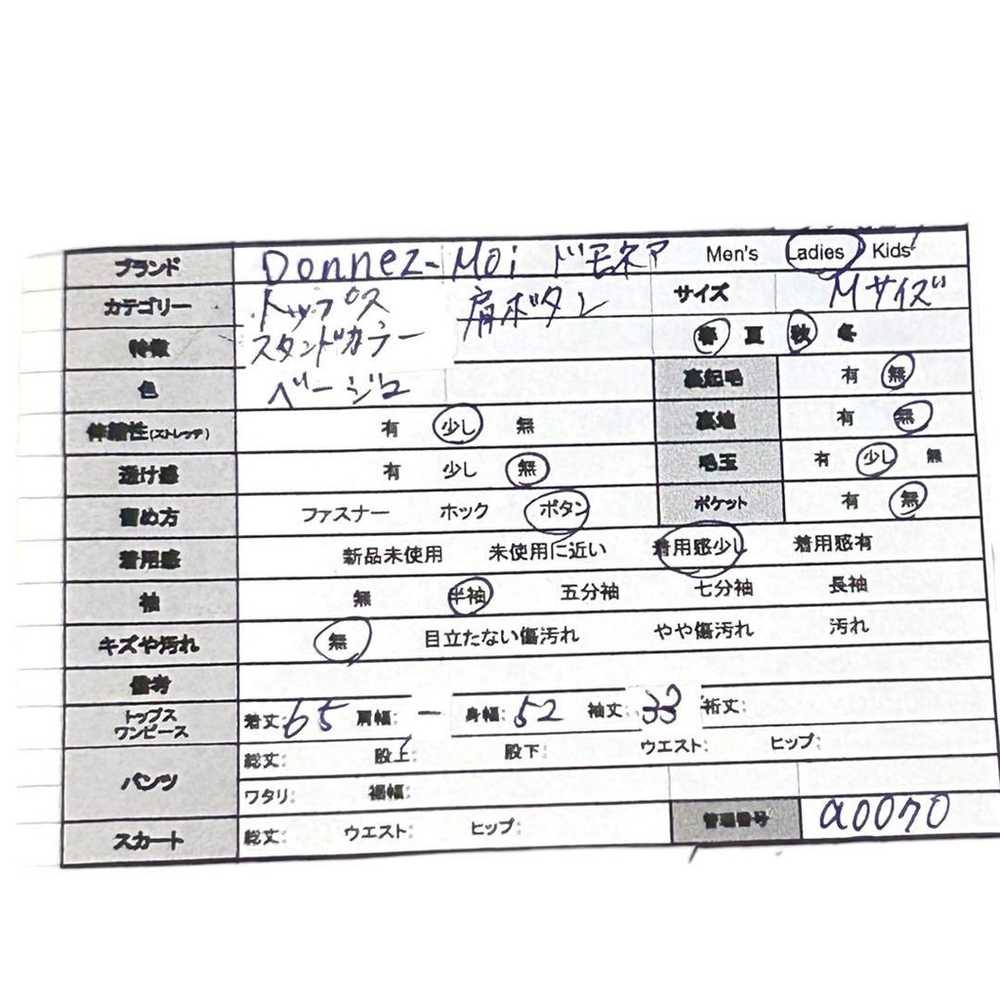 ブランド Donnez-Moi ドモネア Men's Ladies Kids
カテゴリー トップス 肩ボタン サイズ Mサイズ
特徴 スタンドカラー 春 夏 秋 冬
色 ベージュ 裏起毛 有 無
伸縮性(ストレッチ) 有 少し 無 裏地 有 無
透け感 有 少し 無 毛玉 有 少し 無
留め方 ファスナー ホック ボタン ポケット 有 無
着用感 新品未使用 未使用に近い 着用感少し 着用感有
袖 無 半袖 五分袖 七分袖 長袖
キズや汚れ 無 目立たない傷汚れ やや傷汚れ 汚れ
備考
トップス
ワンピース 着丈:65 肩幅:ー 身幅:52 袖丈:33 裄丈:
パンツ 総丈: 股上: 股下: ウエスト: ヒップ:
ワタリ: 裾幅:
スカート 総丈: ウエスト: ヒップ: 管理番号 a0070